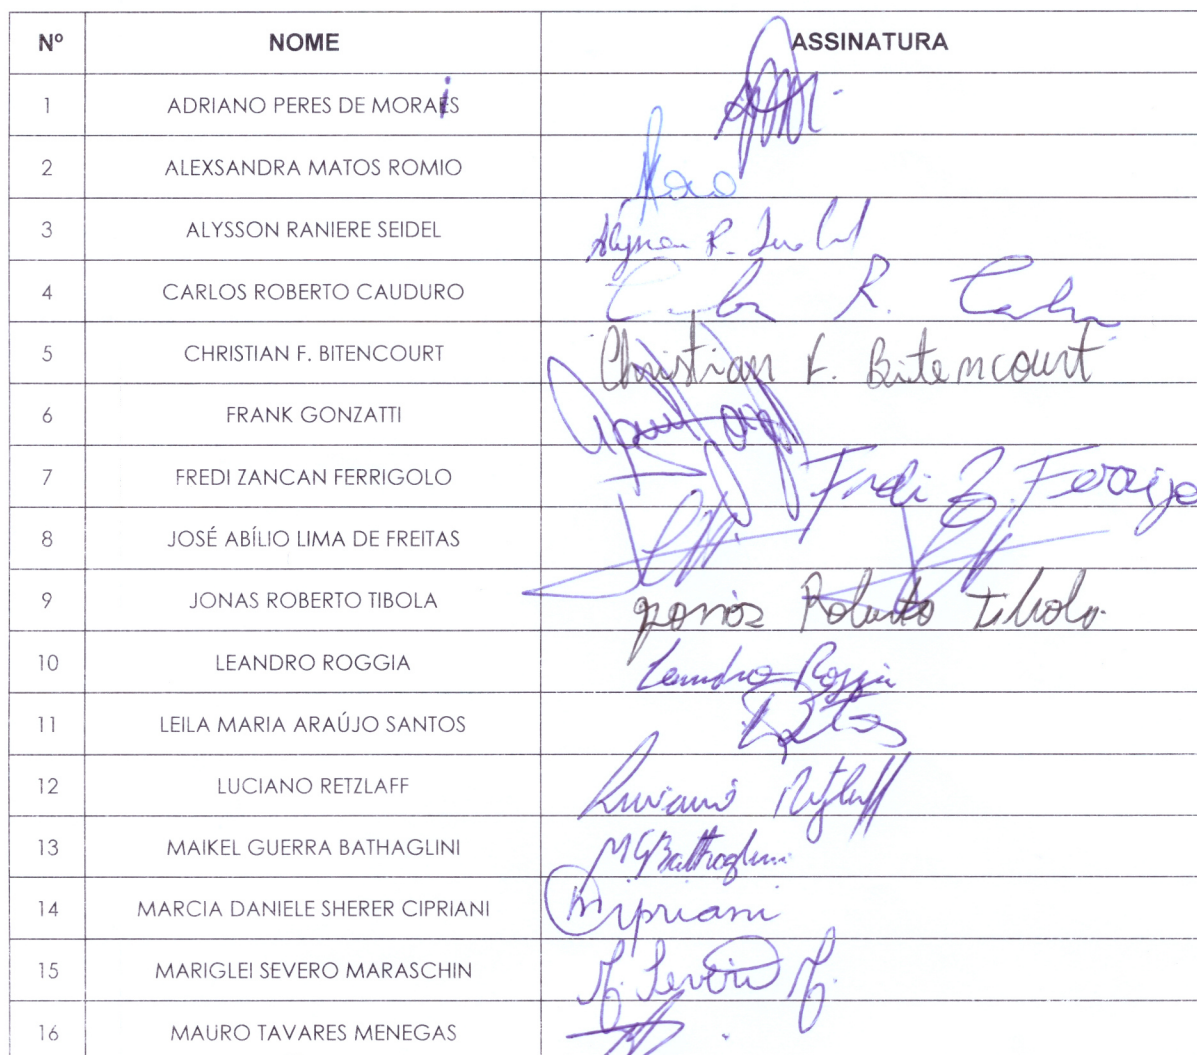 Nº NOME ASSINATURA
1 ADRIANO PERES DE MORAES
2 ALEXSANDRA MATOS ROMIO
3 ALYSSON RANIERE SEIDEL
4 CARLOS ROBERTO CAUDURO
5 CHRISTIAN F. BITENCOURT Christian F. Bitencourt
6 FRANK GONZATTI
7 FREDI ZANCAN FERRIGOLO Fredi Z. Ferrigo
8 JOSÉ ABÍLIO LIMA DE FREITAS
9 JONAS ROBERTO TIBOLA Jonas Roberto Tibola
10 LEANDRO ROGGIA Leandro Roggia
11 LEILA MARIA ARAÚJO SANTOS
12 LUCIANO RETZLAFF Luciano Retzlaff
13 MAIKEL GUERRA BATHAGLINI MGBathaglini
14 MARCIA DANIELE SHERER CIPRIANI MCipriani
15 MARIGLEI SEVERO MARASCHIN M. Severo M.
16 MAURO TAVARES MENEGAS